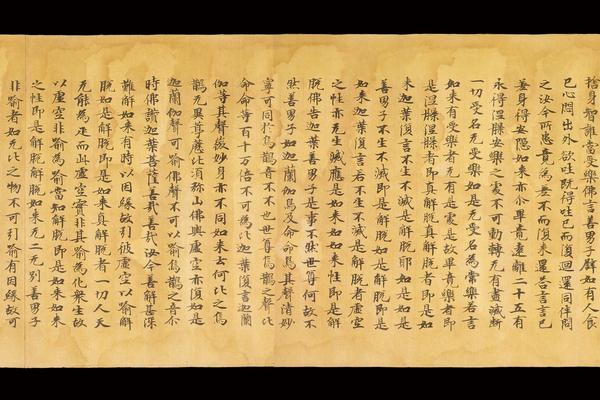 捨身智誰當受樂佛言善男子譬如有人食
已心悶出外欲吐既得吐已而復迴還同伴問
之汝今所患竟為差不而復來還答言言已
差身得安隱如來亦尒畢竟遠離二十五有
永得涅槃安樂之處不可動轉无有盡滅斷
一切受名无受樂如是无受名為常樂若言
如來有受樂者无有是處是故畢竟樂者即
是涅槃涅槃者即真解脫真解脫者即是如
來迦葉復言不生不滅是解脫耶如是如是
善男子不生不滅即是解脫如是解脫即是
如來迦葉復言若不生不滅是解脫者虛空
之性亦无生滅應是如來如如來性即是解
脫佛告迦葉善男子是事不然世尊何故不
然善男子如迦蘭伽鳥及命命鳥其聲清妙
寧可同於烏鵲音不不也世尊烏鵲之聲比
命命等百千万倍不可為比迦葉復言迦蘭
伽等其聲微妙身亦不同如來云何比之烏
鵲无異葶藶比須弥山佛與虛空亦復如是
迦蘭伽聲可喻佛聲不可以喻烏鵲之音尒
時佛讚迦葉菩薩善哉善哉汝今善解甚深
難解如來有時以因緣故引彼虛空以喻解
脫如是解脫即是如來真解脫者一切人天
无能為疋而此虛空實非其喻為化眾生故
以虛空非喻為喻當知解脫即是如來如來
之性即是解脫解脫如來无二无別善男子
非喻者如无比之物不可引喻有因緣故可